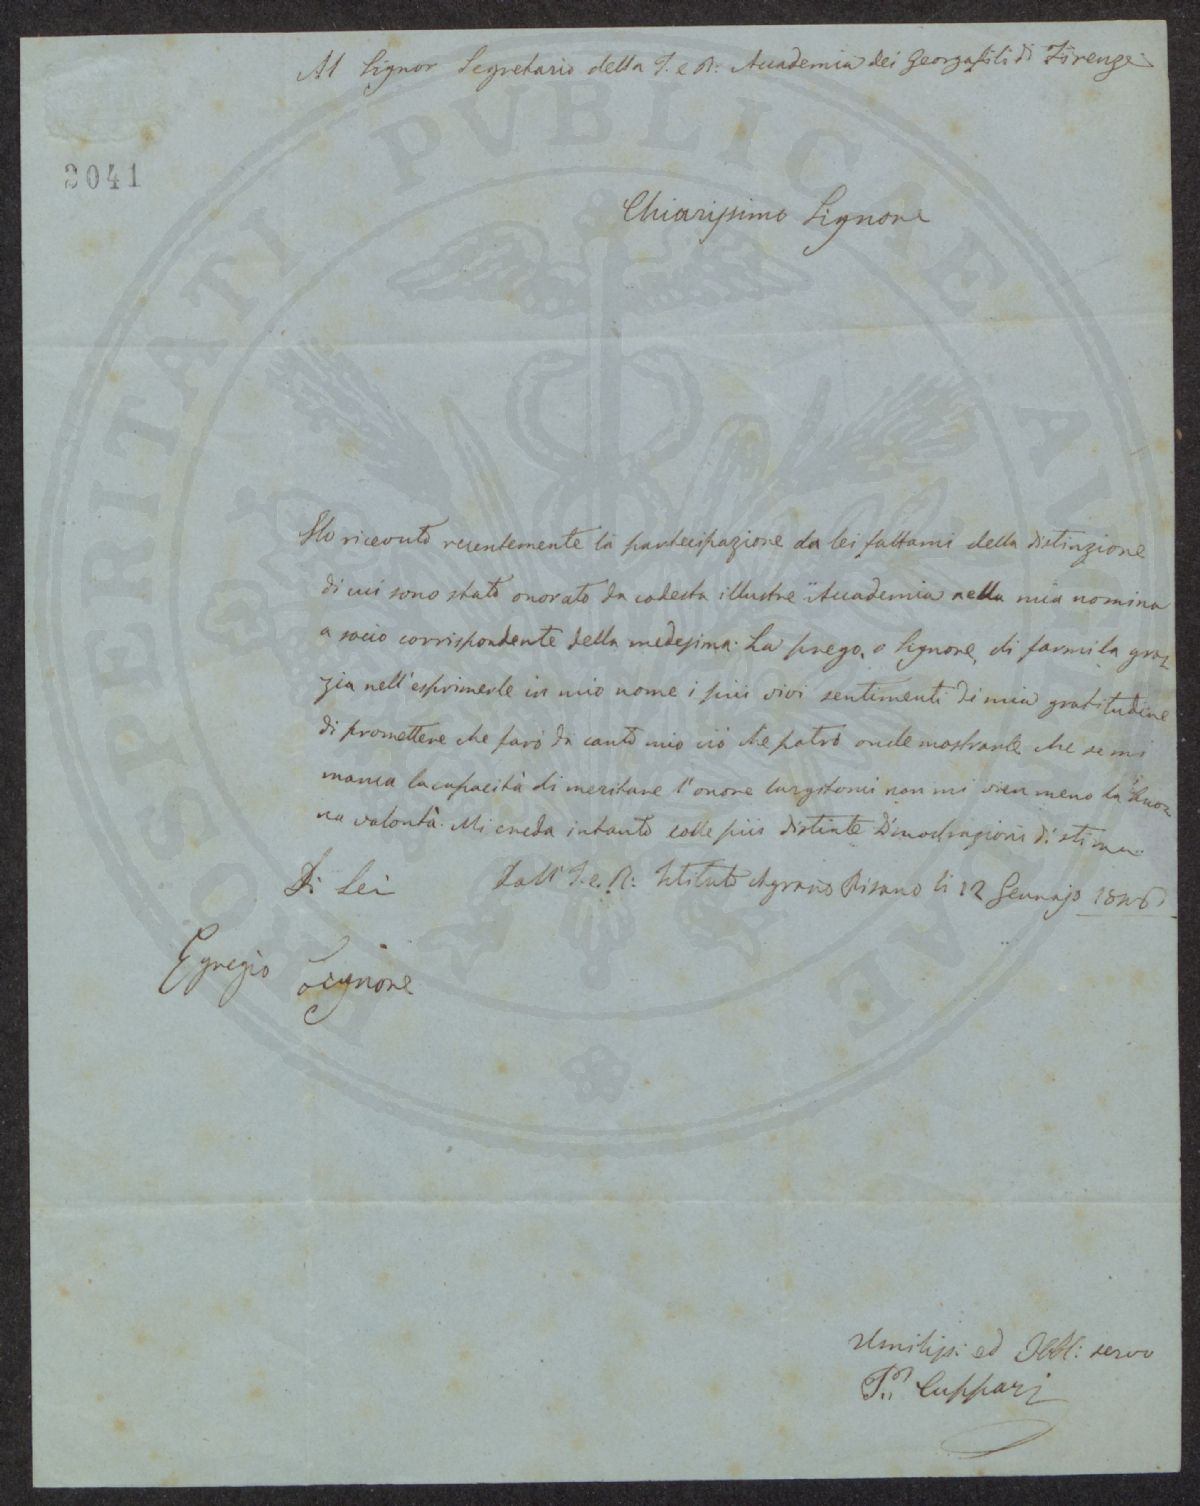 Al Signor Segretario della I. e R. Accademia dei Georgofili di Firenze
2041
Chiarissimo Signore
Ho ricevuto recentemente la partecipazione da lei fattami della distinzione
di cui sono stato onorato da codesta illustre Accademia nella mia nomina
a socio corrispondente della medesima. La prego, o Signore, di farmi la gra-
zia nell'esprimerle in mio nome i più vivi sentimenti di mia gratitudine
di promettere che farò da canto mio ciò che potrò onde mostrarle che se mi
manca la capacità di meritare l'onore largitomi non mi vien meno la buo-
na volontà. Mi creda intanto colle più distinte dimostrazioni di stima.
Di Lei Dall' I. e. R. Istituto Agrario Pisano li 12 Gennajo 1846
Egregio Signore
Umiliss: ed Obbl: servo
P. Cuppari
PROSPERITATI PUBLICAE AUGENDAE